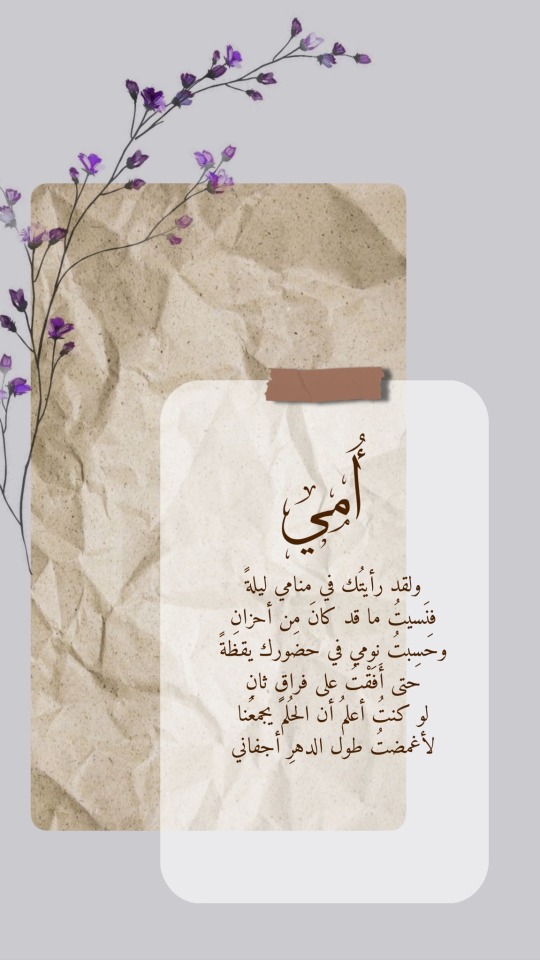 أُمي
ولقد رأيتُك في منامي ليلةً
فنَسيتُ ما قد كانَ مِن أحزانِ
وحَسِبتُ نومي في حضورك يقظةً
حتى أَفَقْتُ على فراقٍ ثانِ
لو كنتُ أعلمُ أن الحُلمَ يجمعُنا
لأغمضتُ طول الدهرِ أجفاني